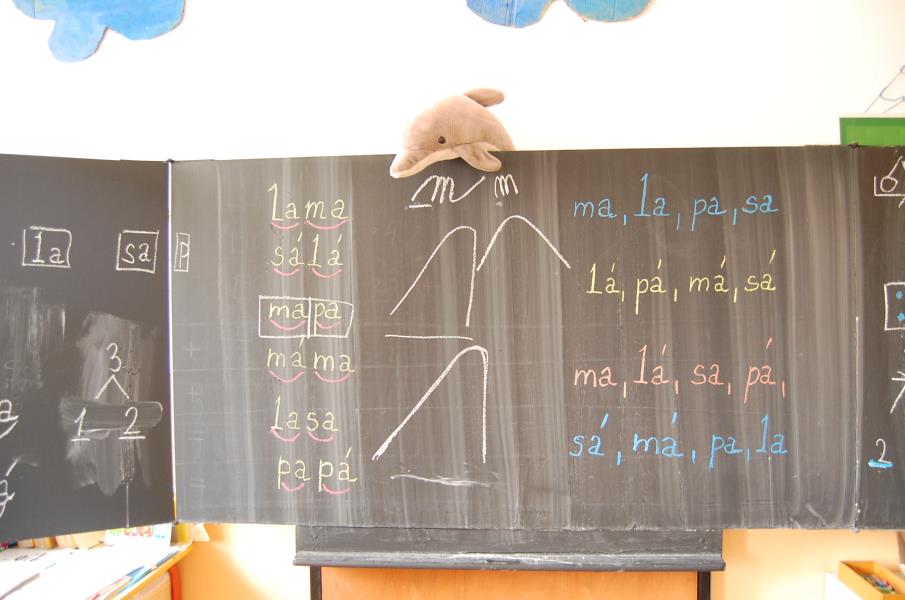 la sa p
3
1 2
lama
sálá
mapa
máma
lasa
papá
m m
ma, la, pa, sa
lá, pá, má, sá
ma, lá, sa, pá,
sá, má, pa, la
2